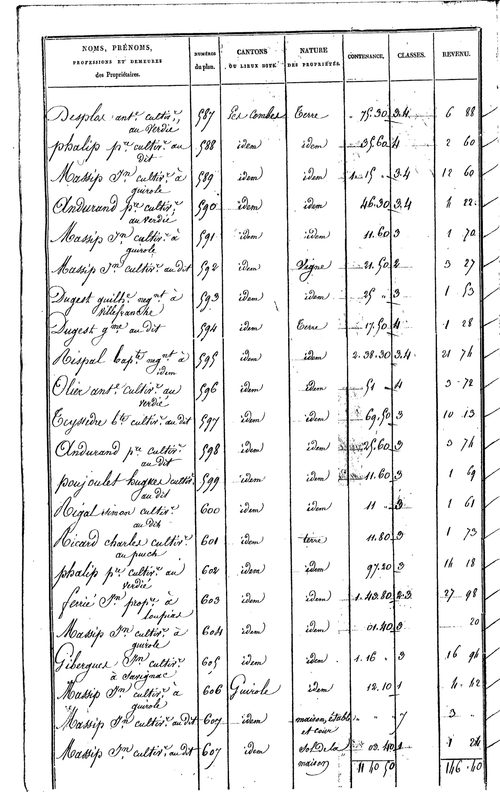 NOMS, PRÉNOMS, PROFESSIONS ET DEMEURES des Propriétaires. NUMÉROS du plan. CANTONS OU LIEUX DITS NATURE DES PROPRIÉTÉS. CONTENANCE. CLASSES. REVENU.
Desplos ant.e cultiv.r au Verdié 587 Les Combes Terre 75.30 3.4 6 88
phalip p.re cultiv.r au dit 588 idem idem 35.60 4 2 60
Massip J.n cultiv.r à guirole 589 idem idem 1.15 3.4 12 60
Andurand p.re cultiv.r au verdié 590 idem idem 46.30 3.4 4 22
Massip J.n cultiv.r à guirole 591 idem idem 11.60 3 1 70
Massip J.n cultiv.r au dit 592 idem Vigne 21.50 2 3 27
Dugest guilh.e mg.nt à Villefranche 593 idem idem 25 3 1 53
Dugest g.me au dit 594 idem Terre 17.50 4 1 28
Rispal bap.te mg.nt à idem 595 idem idem 2.38.30 3.4 21 74
Olier ant.e cultiv.r au verdié 596 idem idem 51 4 3.72
Teyssèdre b.te cultiv.r au dit 597 idem idem 69.50 3 10 13
Andurand p.re cultiv.r au dit 598 idem idem 25.60 3 3 74
poujoulet hugues cultiv.r au dit 599 idem idem 11.60 3 1 69
Rigal simon cultiv.r au dit 600 idem idem 11 3 1 61
Ricard charles cultiv.r au puech 601 idem terre 11.80 3 1 73
phalip p.re cultiv.r au verdié 602 idem idem 97.20 3 14 18
ferrié J.n prop.re à loupiac 603 idem idem 1.43.80 2.3 27 98
Massip J.n cultiv.r à guirole 604 idem idem 01.40 3 20
Gibergues J.n cultiv.r à Savignac 605 idem idem 1.16 3 16 94
Massip J.n cultiv.r à guirole 606 Guirole idem 12.10 1 4.42
Massip J.n cultiv.r au dit 607 idem maison, Étable et cour 7 3
Massip J.n cultiv.r au dit 607 idem Sol de la maison 03.40 1 1 24
11 40 50 146.40